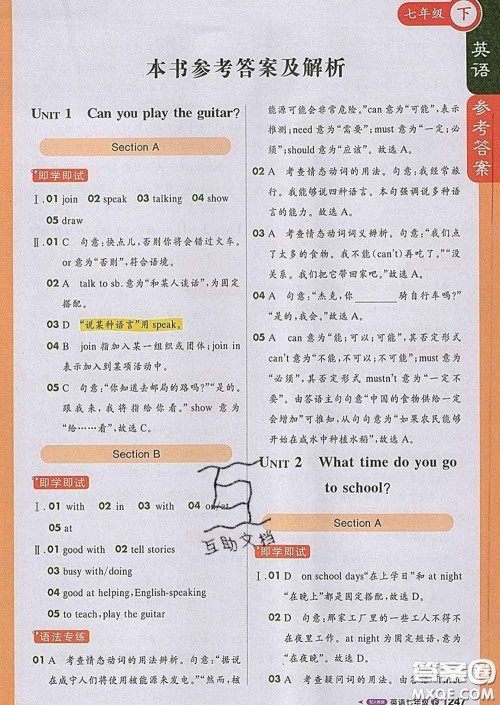 七年级 下
英语
参考答案
本书参考答案及解析
UNIT 1 Can you play the guitar?
Section A
即学即试
Ⅰ. 01 join 02 speak 03 talking 04 show
05 draw
Ⅱ. 01 C 句意:快点儿,否则你将会错过火车。
or 意为"否则",符合语境。
02 A talk to sb. 意为"和某人谈话",为固定
搭配。
03 D "说某种语言"用 speak。
04 B join 指加入某一组织或团体; join in
表示加入到某项活动中。
05 C 句意:"你知道去邮局的路吗?""是的。
跟我来,我将指给你看。"show 意为
"给……看",故选 C。
Section B
即学即试
Ⅰ. 01 with 02 in 03 with 04 on/at
05 at
Ⅱ. 01 good with 02 tell stories
03 busy with/doing
04 good at helping, English-speaking
05 to teach, play the guitar
语法专练
01 A 考查情态动词的用法辨析。句意:"据说在
能源可能会非常危险。"can 意为"可能",表示
推测;need 意为"需要";must 意为"一定;必
须";should 意为"应该"。故选 A。
02 A 考查情态动词的用法。句意:我经常旅
行。我能够说四种语言。本句强调说多种语
言的能力。故选 A。
03 A 考查情态动词词义辨析。句意:"我们点
了太多的食物。我不能(can't)再吃了。""没
关系。我们可以把它带回家。"故选 A。
04 A 句意:"杰克,你 骑自行车吗?"
"是的,我会。"故选 A。
05 A can 意为"能;可以;可能",其否定形式
can't 意为"不能;不可以;不可能";must 意为
"必须",其否定形式 mustn't 意为"一定不
要"。由答语主句句意"中国的食物供给一定
会增加"可推知,从句句意为"如果农民能够
开始在咸水中种植水稻",故选 A。
UNIT 2 What time do you go
to school?
Section A
即学即试
Ⅰ. 01 D on school days"在上学日"和 at night
"在晚上"都是固定搭配。故选 D。
02 D 句意:那家工厂里的一些工人不得不
在夜里工作。at night 为固定短语,意为"在
夜晚"。故选 D。
03 A 考查疑问词的用法。句意:
互助文档
英语七年级 下 247
答案圈
MXQE.COM